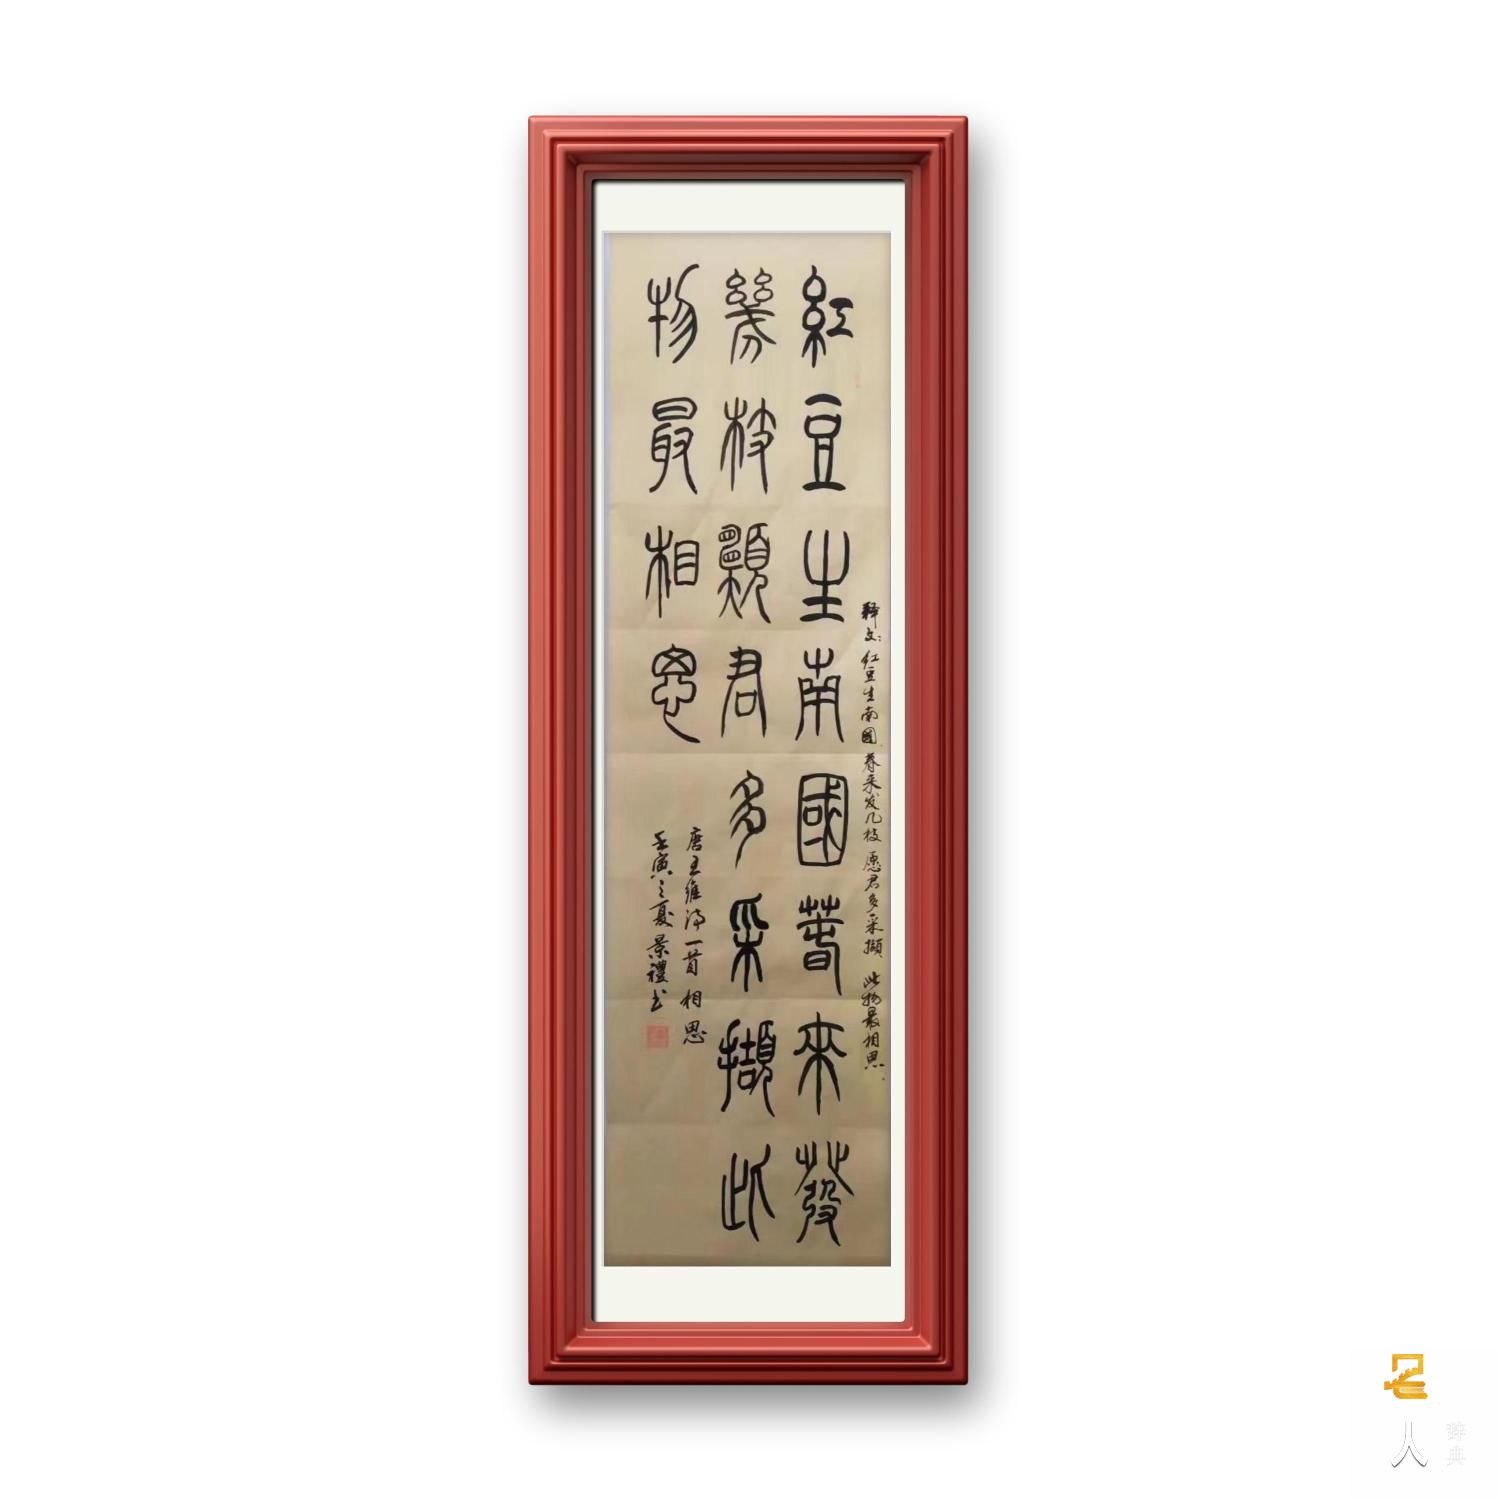 紅豆生南國春來發
幾枝願君多采擷此
物最相思
释文：红豆生南國 春来发几枝 愿君多采擷 此物最相思.
唐王维诗一首相思
壬寅之夏景禮书
名
人
辞典